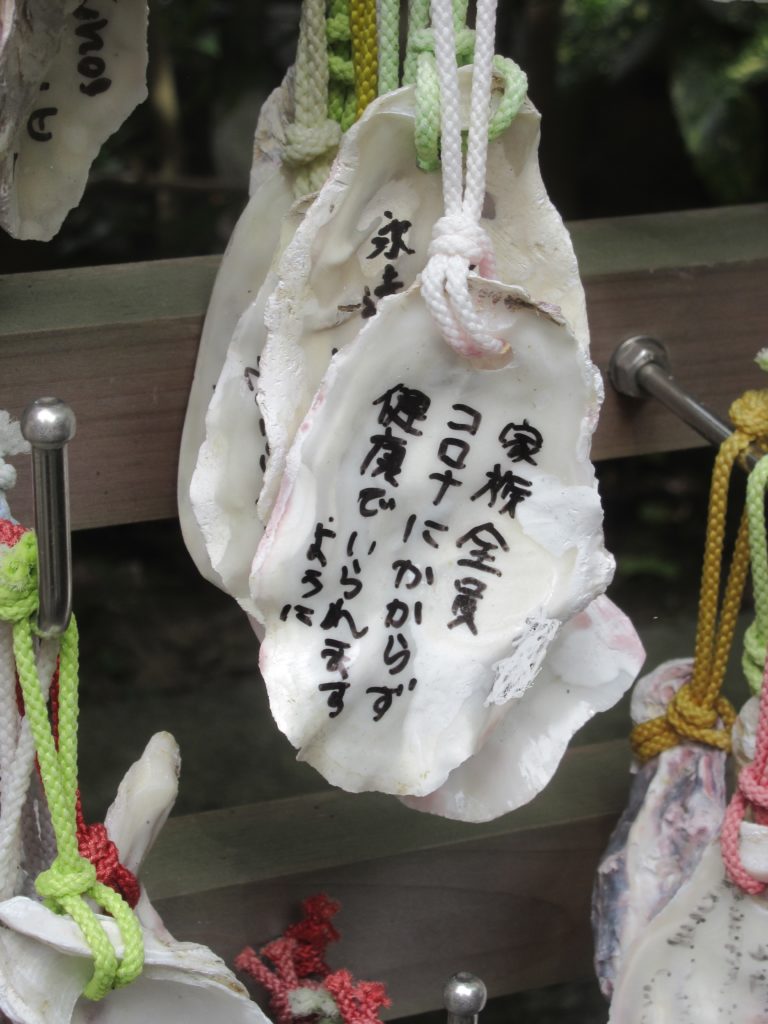 家族全員
コロナにかからず
健康でいられます
ように
永